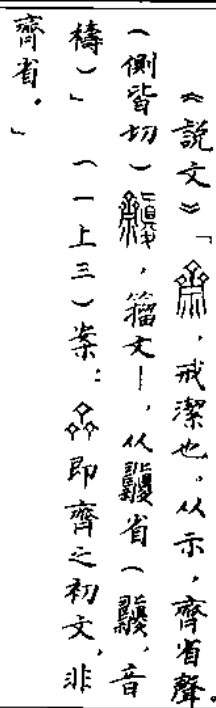 《說文》「,戒潔也。从示,齊省聲。
(側皆切),籀文—,从省(,音
禱)」(一上三)案:即齊之初文,非
齊省。」